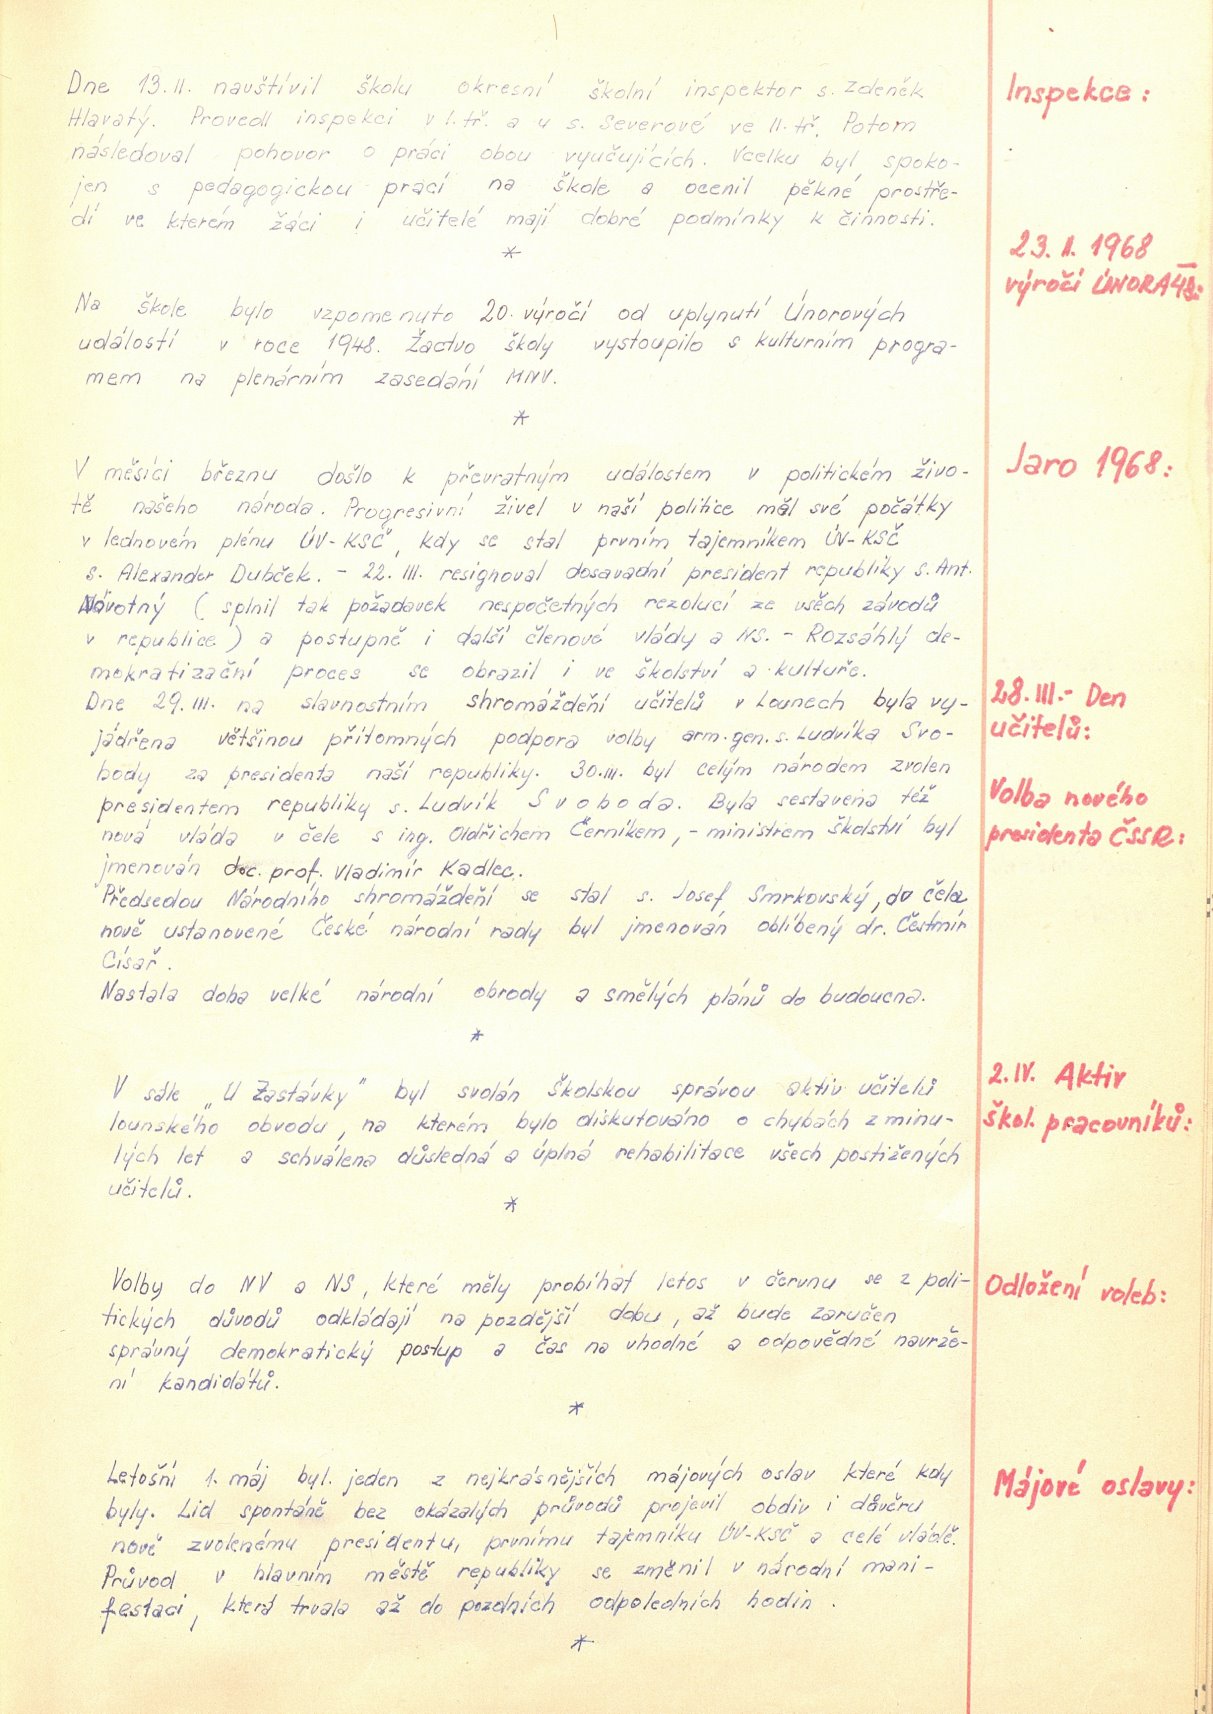 Dne 13. II. navštívil školu okresní školní inspektor s. Zdeněk
Hlavatý. Provedl inspekci v I. tř. a u s. Severové ve II. tř. Potom
následoval pohovor o práci obou vyučujících. Vcelku byl spoko-
jen s pedagogickou prací na škole a ocenil pěkné prostře-
dí ve kterém žáci i učitelé mají dobré podmínky k činnosti.
Inspekce:
*
23. II. 1968
výročí ÚNORA 48:
Na škole bylo vzpomenuto 20. výročí od uplynutí Únorových
událostí v roce 1948. Žactvo školy vystoupilo s kulturním progra-
mem na plenárním zasedání MNV.
*
Jaro 1968:
V měsíci březnu došlo k převratným událostem v politickém živo-
tě našeho národa. Progresivní živel v naší politice měl své počátky
v lednovém plénu ÚV-KSČ, kdy se stal prvním tajemníkem ÚV-KSČ
s. Alexander Dubček. - 22. III. resignoval dosavadní president republiky s. Ant.
Návotný (splnil tak požadavek nespočetných rezolucí ze všech závodů
v republice) a postupně i další členové vlády a NS. - Rozsáhlý de-
mokratizační proces se obrazil i ve školství a kultuře.
28. III. - Den
učitelů:
Dne 29. III. na slavnostním shromáždění učitelů v Lounech byla vy-
jádřena většinou přítomných podpora volby arm. gen. s. Ludvíka Svo-
body za presidenta naší republiky. 30. III. byl celým národem zvolen
presidentem republiky s. Ludvík Svoboda. Byla sestavena též
nová vláda v čele s ing. Oldřichem Černíkem, - ministrem školství byl
jmenován doc. prof. Vladimír Kadlec.
Volba nového
presidenta ČSSR:
Předsedou Národního shromáždění se stal s. Josef Smrkovský, do čela
nově ustanovené České národní rady byl jmenován oblíbený dr. Čestmír
Císař.
Nastala doba velké národní obrody a smělých plánů do budoucna.
*
2. IV. Aktiv
škol. pracovníků:
V sále „U Zastávky" byl svolán Školskou správou aktiv učitelů
lounského obvodu, na kterém bylo diskutováno o chybách z minu-
lých let a schválena důsledná a úplná rehabilitace všech postižených
učitelů.
*
Odložení voleb:
Volby do NV a NS, které měly probíhat letos v červnu se z poli-
tických důvodů odkládají na pozdější dobu, až bude zaručen
správný demokratický postup a čas na vhodné a odpovědné navrže-
ní kandidátů.
*
Májové oslavy:
Letošní 1. máj byl jeden z nejkrásnějších májových oslav které kdy
byly. Lid spontáně bez okázalých průvodů projevil obdiv i důvěru
nově zvolenému presidentu, prvnímu tajemníku ÚV-KSČ a celé vládě.
Průvod v hlavním městě republiky se změnil v národní mani-
festaci, která trvala až do pozdních odpoledních hodin.
*